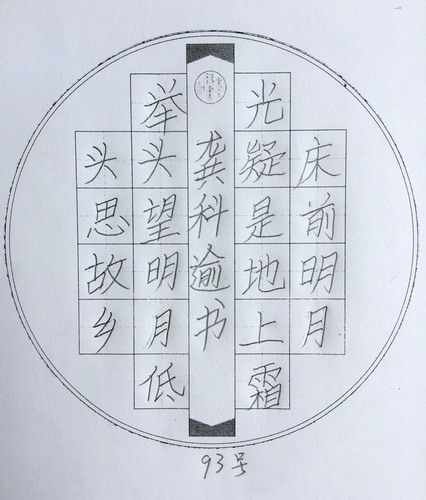 床前明月
光疑是地上霜
龚科逾书
举头望明月低
头思故乡
93号